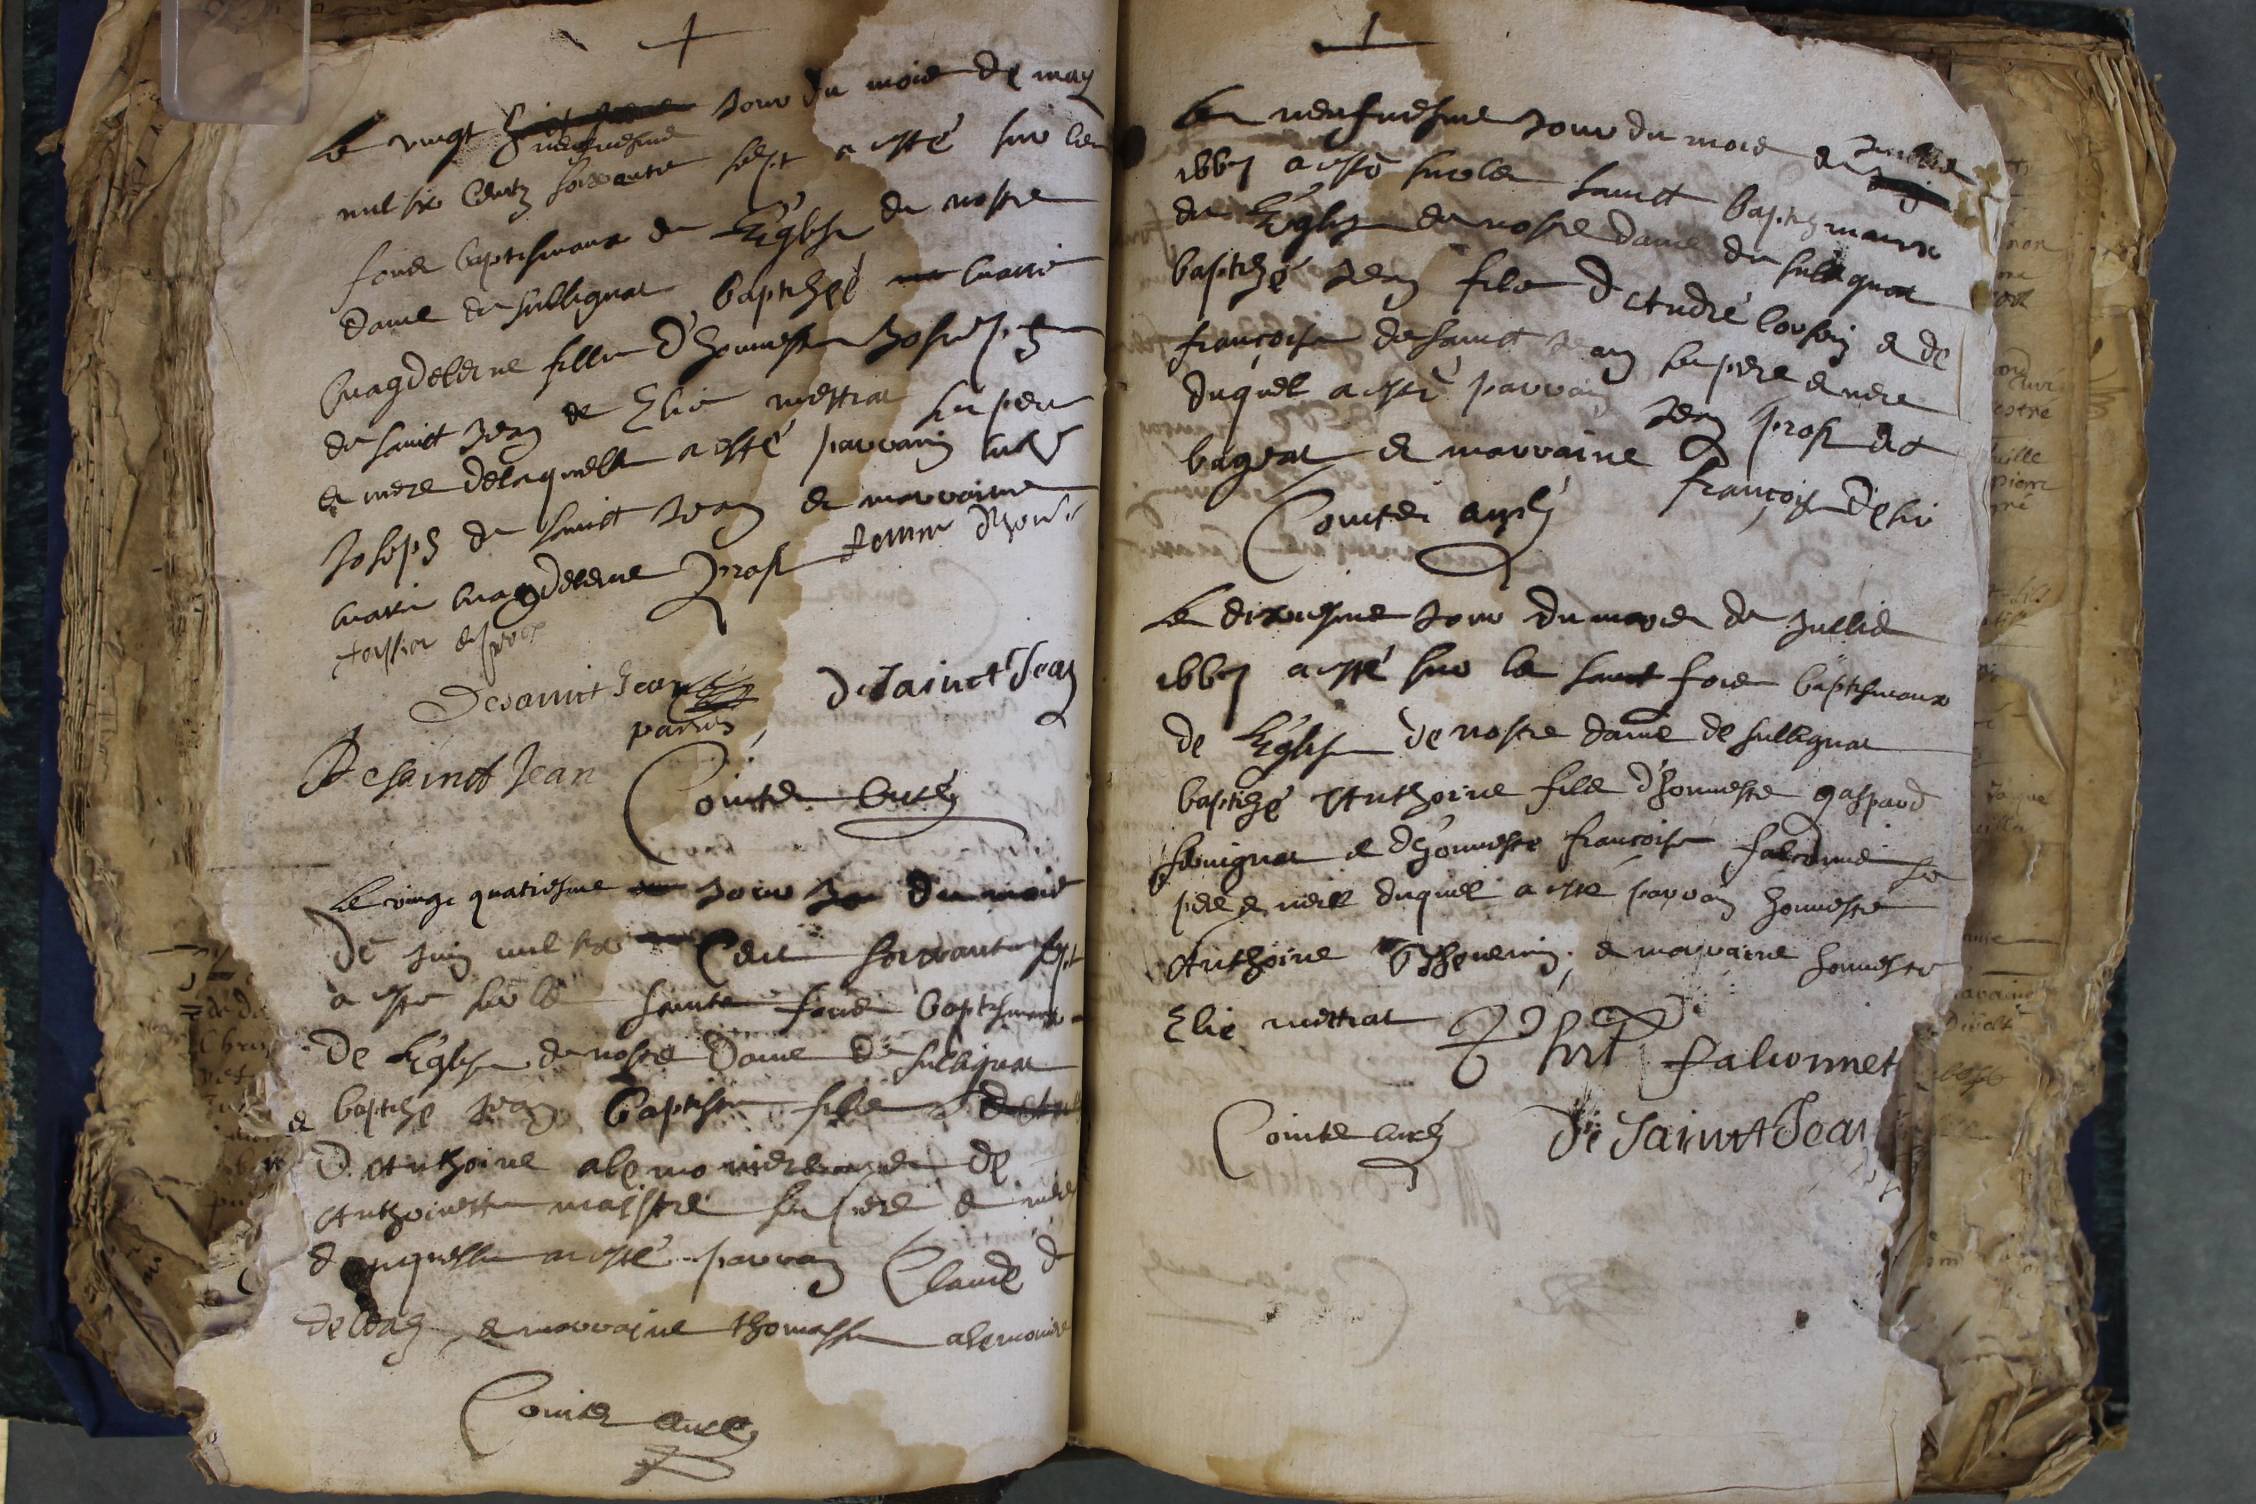 Le vingt neufviesme jour du mois de may
mil six centz soixante sept a esté sur les
fons baptismaux de L'Eglise de nostre
dame de sullignat baptizée marie
magdeleine fillie d'honneste Joseph
de sainct Jean et Elie mettrat ses pere
et mere delaquelle a esté parrain me
Joseph de sainct Jean et marraine
marie magdeleine prost femme
Desainct Jean
parrin
De Sainct Jean
De sainct Jean
Comte curé
Le vingt quatriesme jour du mois
de juin mil six cent soixante sept
a este sur les saints fons baptismaux
de L'Eglise de nostre Dame de sullignat
baptizé Jean baptiste filz
D'Anthoine de
Anthoinette maistre ses pere et mere
a esté parrain Claude de
et marraine thomasse
Comte curé
Le neufviesme jour du mois de Jullie
1667 a esté sur les sainct baptismaux
de L'Eglize de nostre dame de sullignat
baptizé Jean filz d'André et de
françoise de sainct Jean ses pere et mere
duquel a esté parrain Jean prost dit
bagear et marraine françoise
Comte curé
Le dixiesme jour du mois de Jullie
1667 a esté sur les sainct fons baptismaux
de L'Eglise de nostre dame de sullignat
baptizé Anthoine filz d'honneste gaspard
et d'honneste françoise
pere et mere duquel a esté parrain honneste
Anthoine Thevenin et marraine honneste
Elie mettrat
falconnet
Comte curé
De Sainct Jean